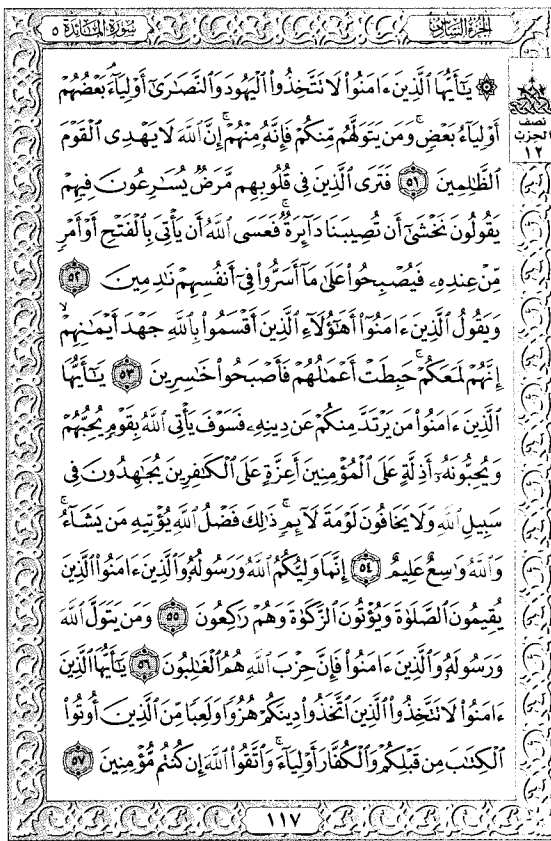 سورة المائدة ٥
الجزء السادس
۞ يَـٰٓأَيُّهَا ٱلَّذِينَ ءَامَنُوا۟ لَا تَتَّخِذُوا۟ ٱلْيَهُودَ وَٱلنَّصَـٰرَىٰٓ أَوْلِيَآءَۘ بَعْضُهُمْ
نصف
الحزب
١٢
أَوْلِيَآءُ بَعْضٍۚ وَمَن يَتَوَلَّهُم مِّنكُمْ فَإِنَّهُۥ مِنْهُمْۗ إِنَّ ٱللَّهَ لَا يَهْدِى ٱلْقَوْمَ
ٱلظَّـٰلِمِينَ ٥١ فَتَرَى ٱلَّذِينَ فِى قُلُوبِهِم مَّرَضٌ يُسَـٰرِعُونَ فِيهِمْ
يَقُولُونَ نَخْشَىٰٓ أَن تُصِيبَنَا دَآئِرَةٌۚ فَعَسَى ٱللَّهُ أَن يَأْتِىَ بِٱلْفَتْحِ أَوْ أَمْرٍ
مِّنْ عِندِهِۦ فَيُصْبِحُوا۟ عَلَىٰ مَآ أَسَرُّوا۟ فِىٓ أَنفُسِهِمْ نَـٰدِمِينَ ٥٢
وَيَقُولُ ٱلَّذِينَ ءَامَنُوٓا۟ أَهَـٰٓؤُلَآءِ ٱلَّذِينَ أَقْسَمُوا۟ بِٱللَّهِ جَهْدَ أَيْمَـٰنِهِمْۙ
إِنَّهُمْ لَمَعَكُمْۚ حَبِطَتْ أَعْمَـٰلُهُمْ فَأَصْبَحُوا۟ خَـٰسِرِينَ ٥٣ يَـٰٓأَيُّهَا
ٱلَّذِينَ ءَامَنُوا۟ مَن يَرْتَدَّ مِنكُمْ عَن دِينِهِۦ فَسَوْفَ يَأْتِى ٱللَّهُ بِقَوْمٍ يُحِبُّهُمْ
وَيُحِبُّونَهُۥٓ أَذِلَّةٍ عَلَى ٱلْمُؤْمِنِينَ أَعِزَّةٍ عَلَى ٱلْكَـٰفِرِينَ يُجَـٰهِدُونَ فِى
سَبِيلِ ٱللَّهِ وَلَا يَخَافُونَ لَوْمَةَ لَآئِمٍۚ ذَٰلِكَ فَضْلُ ٱللَّهِ يُؤْتِيهِ مَن يَشَآءُۚ
وَٱللَّهُ وَٰسِعٌ عَلِيمٌ ٥٤ إِنَّمَا وَلِيُّكُمُ ٱللَّهُ وَرَسُولُهُۥ وَٱلَّذِينَ ءَامَنُوا۟ ٱلَّذِينَ
يُقِيمُونَ ٱلصَّلَوٰةَ وَيُؤْتُونَ ٱلزَّكَوٰةَ وَهُمْ رَٰكِعُونَ ٥٥ وَمَن يَتَوَلَّ ٱللَّهَ
وَرَسُولَهُۥ وَٱلَّذِينَ ءَامَنُوا۟ فَإِنَّ حِزْبَ ٱللَّهِ هُمُ ٱلْغَـٰلِبُونَ ٥٦ يَـٰٓأَيُّهَا ٱلَّذِينَ
ءَامَنُوا۟ لَا تَتَّخِذُوا۟ ٱلَّذِينَ ٱتَّخَذُوا۟ دِينَكُمْ هُزُوًا وَلَعِبًا مِّنَ ٱلَّذِينَ أُوتُوا۟
ٱلْكِتَـٰبَ مِن قَبْلِكُمْ وَٱلْكُفَّارَ أَوْلِيَآءَۚ وَٱتَّقُوا۟ ٱللَّهَ إِن كُنتُم مُّؤْمِنِينَ ٥٧
١١٧